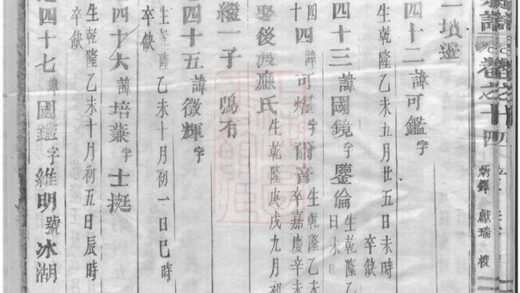 譜 卷之十四
炳鐸 獻瑞 校
一墳塋
四十二諱可鑑字
生乾隆乙未五月廿五日未時
卒缺
四十三諱國鏡字鑒倫
生乾隆乙
日未
十四諱可燿字爾音
生乾隆乙未
卒嘉慶辛未
娶後渡熊氏
生乾隆庚戌九月初
繼一子鳴有
四十五諱徵輝字
生乾隆乙未十月初一日巳時
卒缺
四十六諱培葉字士挺
生乾隆乙未十月初五日辰時
卒缺
四十七諱國鑑字維明號冰湖